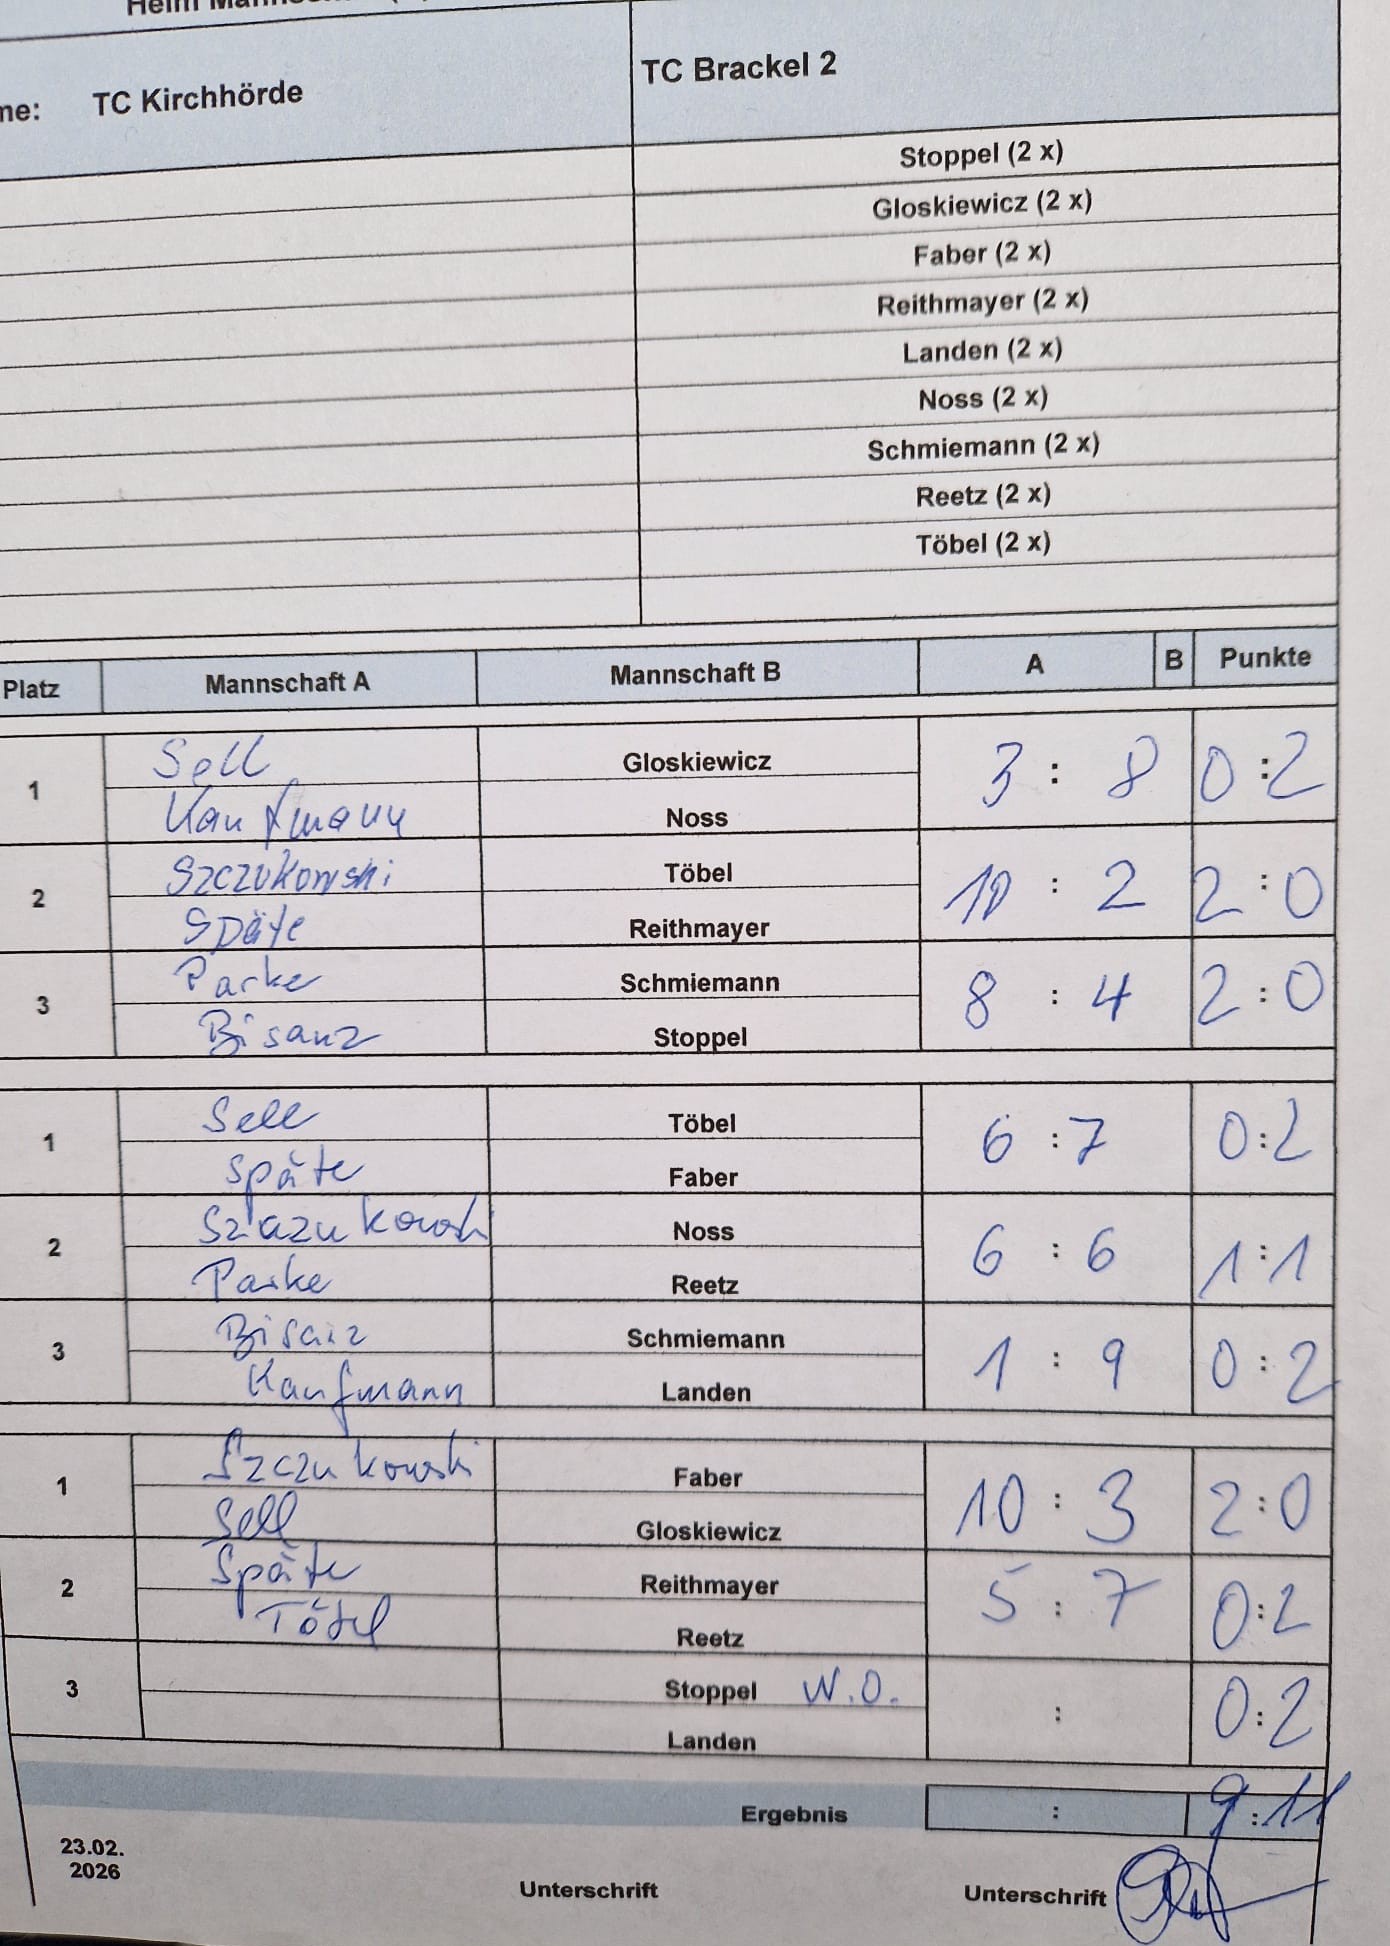 TC Kirchhörde TC Brackel 2
Stoppel (2 x)
Gloskiewicz (2 x)
Faber (2 x)
Reithmayer (2 x)
Landen (2 x)
Noss (2 x)
Schmiemann (2 x)
Reetz (2 x)
Töbel (2 x)
Platz Mannschaft A Mannschaft B A B Punkte
1 Sell Gloskiewicz 3 : 8 0 : 2
Kaufmann Noss
2 Szczukowski Töbel 10 : 2 2 : 0
Späte Reithmayer
3 Parke Schmiemann 8 : 4 2 : 0
Bisanz Stoppel
1 Sell Töbel 6 : 7 0 : 2
Späte Faber
2 Noss 6 : 6 1 : 1
Parke Reetz
3 Bisanz Schmiemann 1 : 9 0 : 2
Kaufmann Landen
1 Szczukowski Faber 10 : 3 2 : 0
Sell Gloskiewicz
2 Späte Reithmayer 5 : 7 0 : 2
Töbel Reetz
3 Stoppel W.O. : 0 : 2
Landen
Ergebnis : 9 : 11
23.02.
2026
Unterschrift Unterschrift